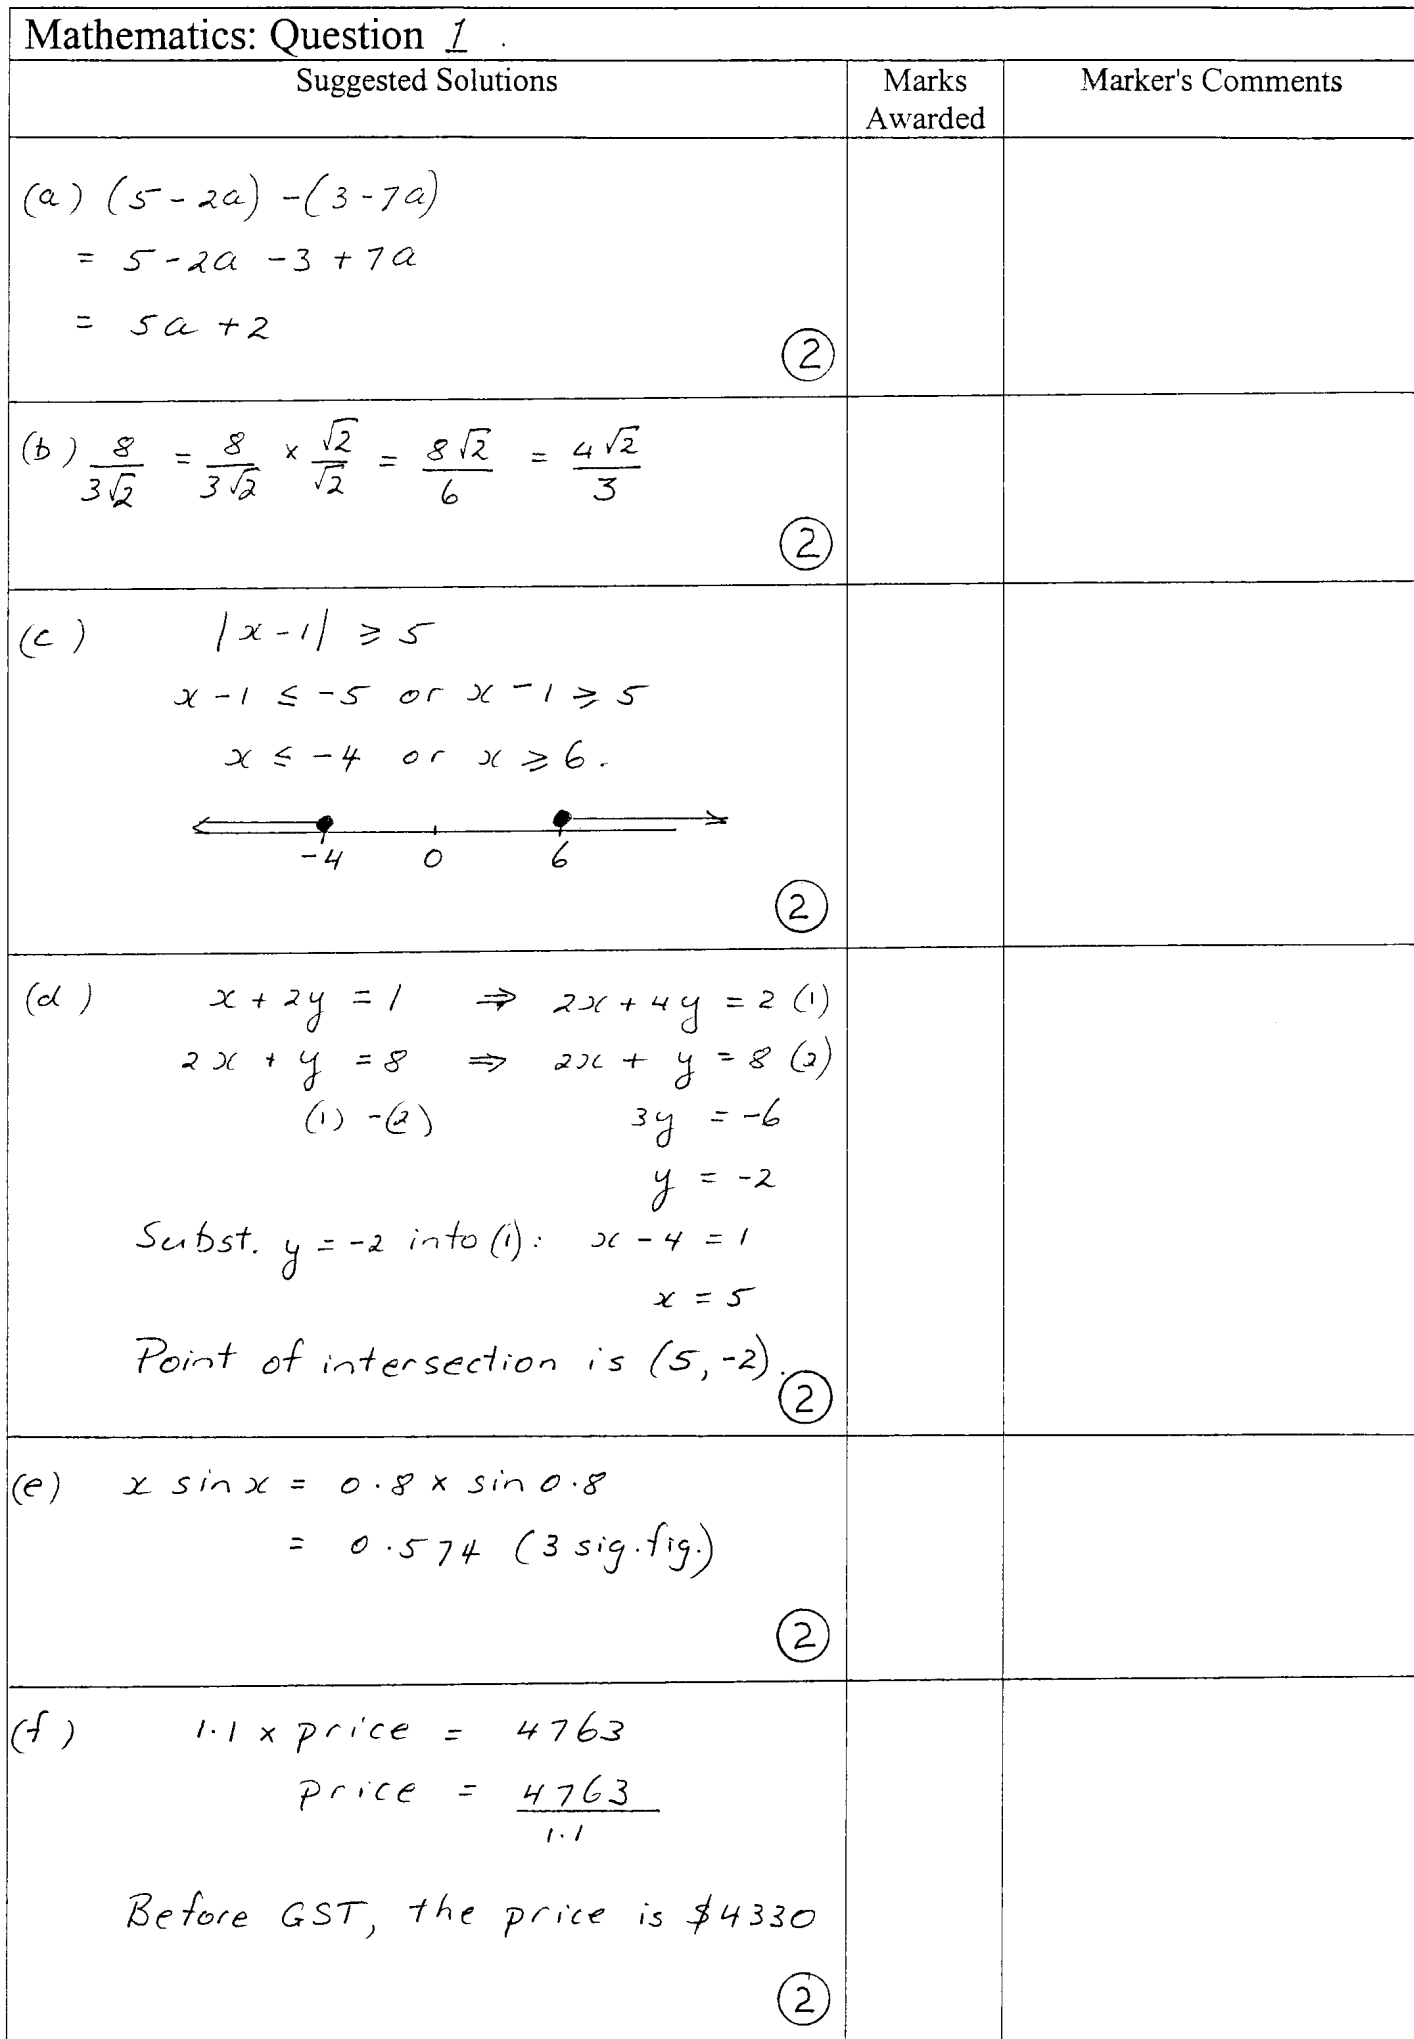 Mathematics: Question 1 .
Suggested Solutions
Marks Awarded
Marker's Comments
(a) (5 - 2a) - (3 - 7a)
= 5 - 2a - 3 + 7a
= 5a + 2
②
(b) 8/(3√2) = 8/(3√2) × √2/√2 = 8√2/6 = 4√2/3
②
(c) |x - 1| ⩾ 5
x - 1 ≤ -5 or x - 1 ⩾ 5
x ≤ -4 or x ⩾ 6.
-4 0 6
②
(d) x + 2y = 1 ⇒ 2x + 4y = 2 (1)
2x + y = 8 ⇒ 2x + y = 8 (2)
(1) - (2) 3y = -6
y = -2
Subst. y = -2 into (1): x - 4 = 1
x = 5
Point of intersection is (5, -2).
②
(e) x sin x = 0.8 × sin 0.8
= 0.574 (3 sig. fig.)
②
(f) 1.1 × price = 4763
price = 4763/1.1
Before GST, the price is $4330
②